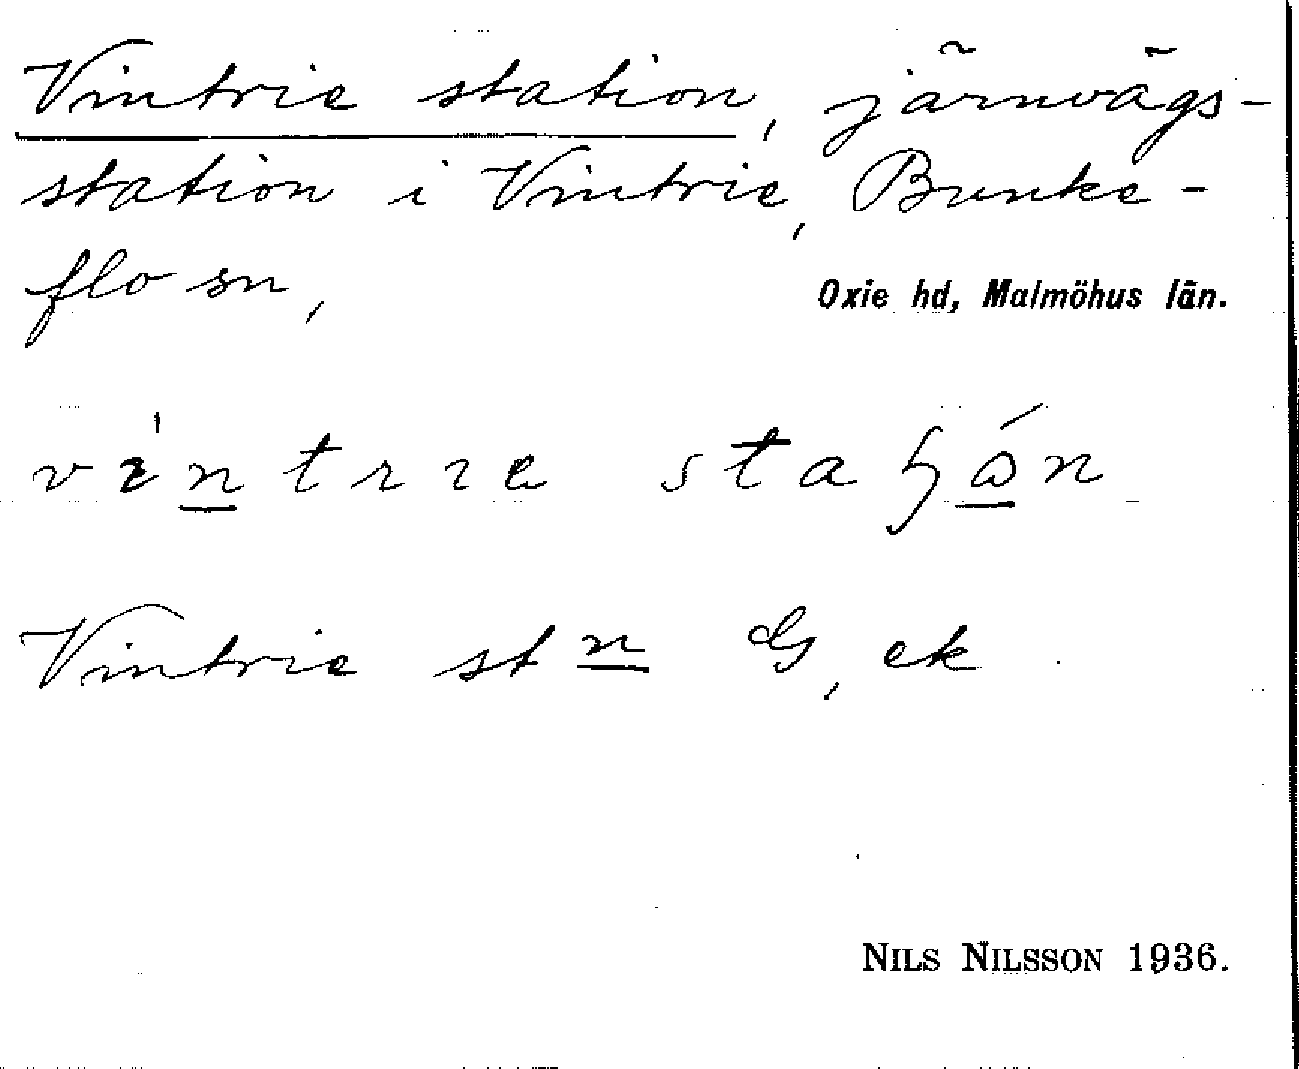 Vintrie station, järnvägs-
station i Vintrie, Bunke-
flo sn,
Oxie hd, Malmöhus län.
Vintrie stn G, ek
NILS NILSSON 1936.